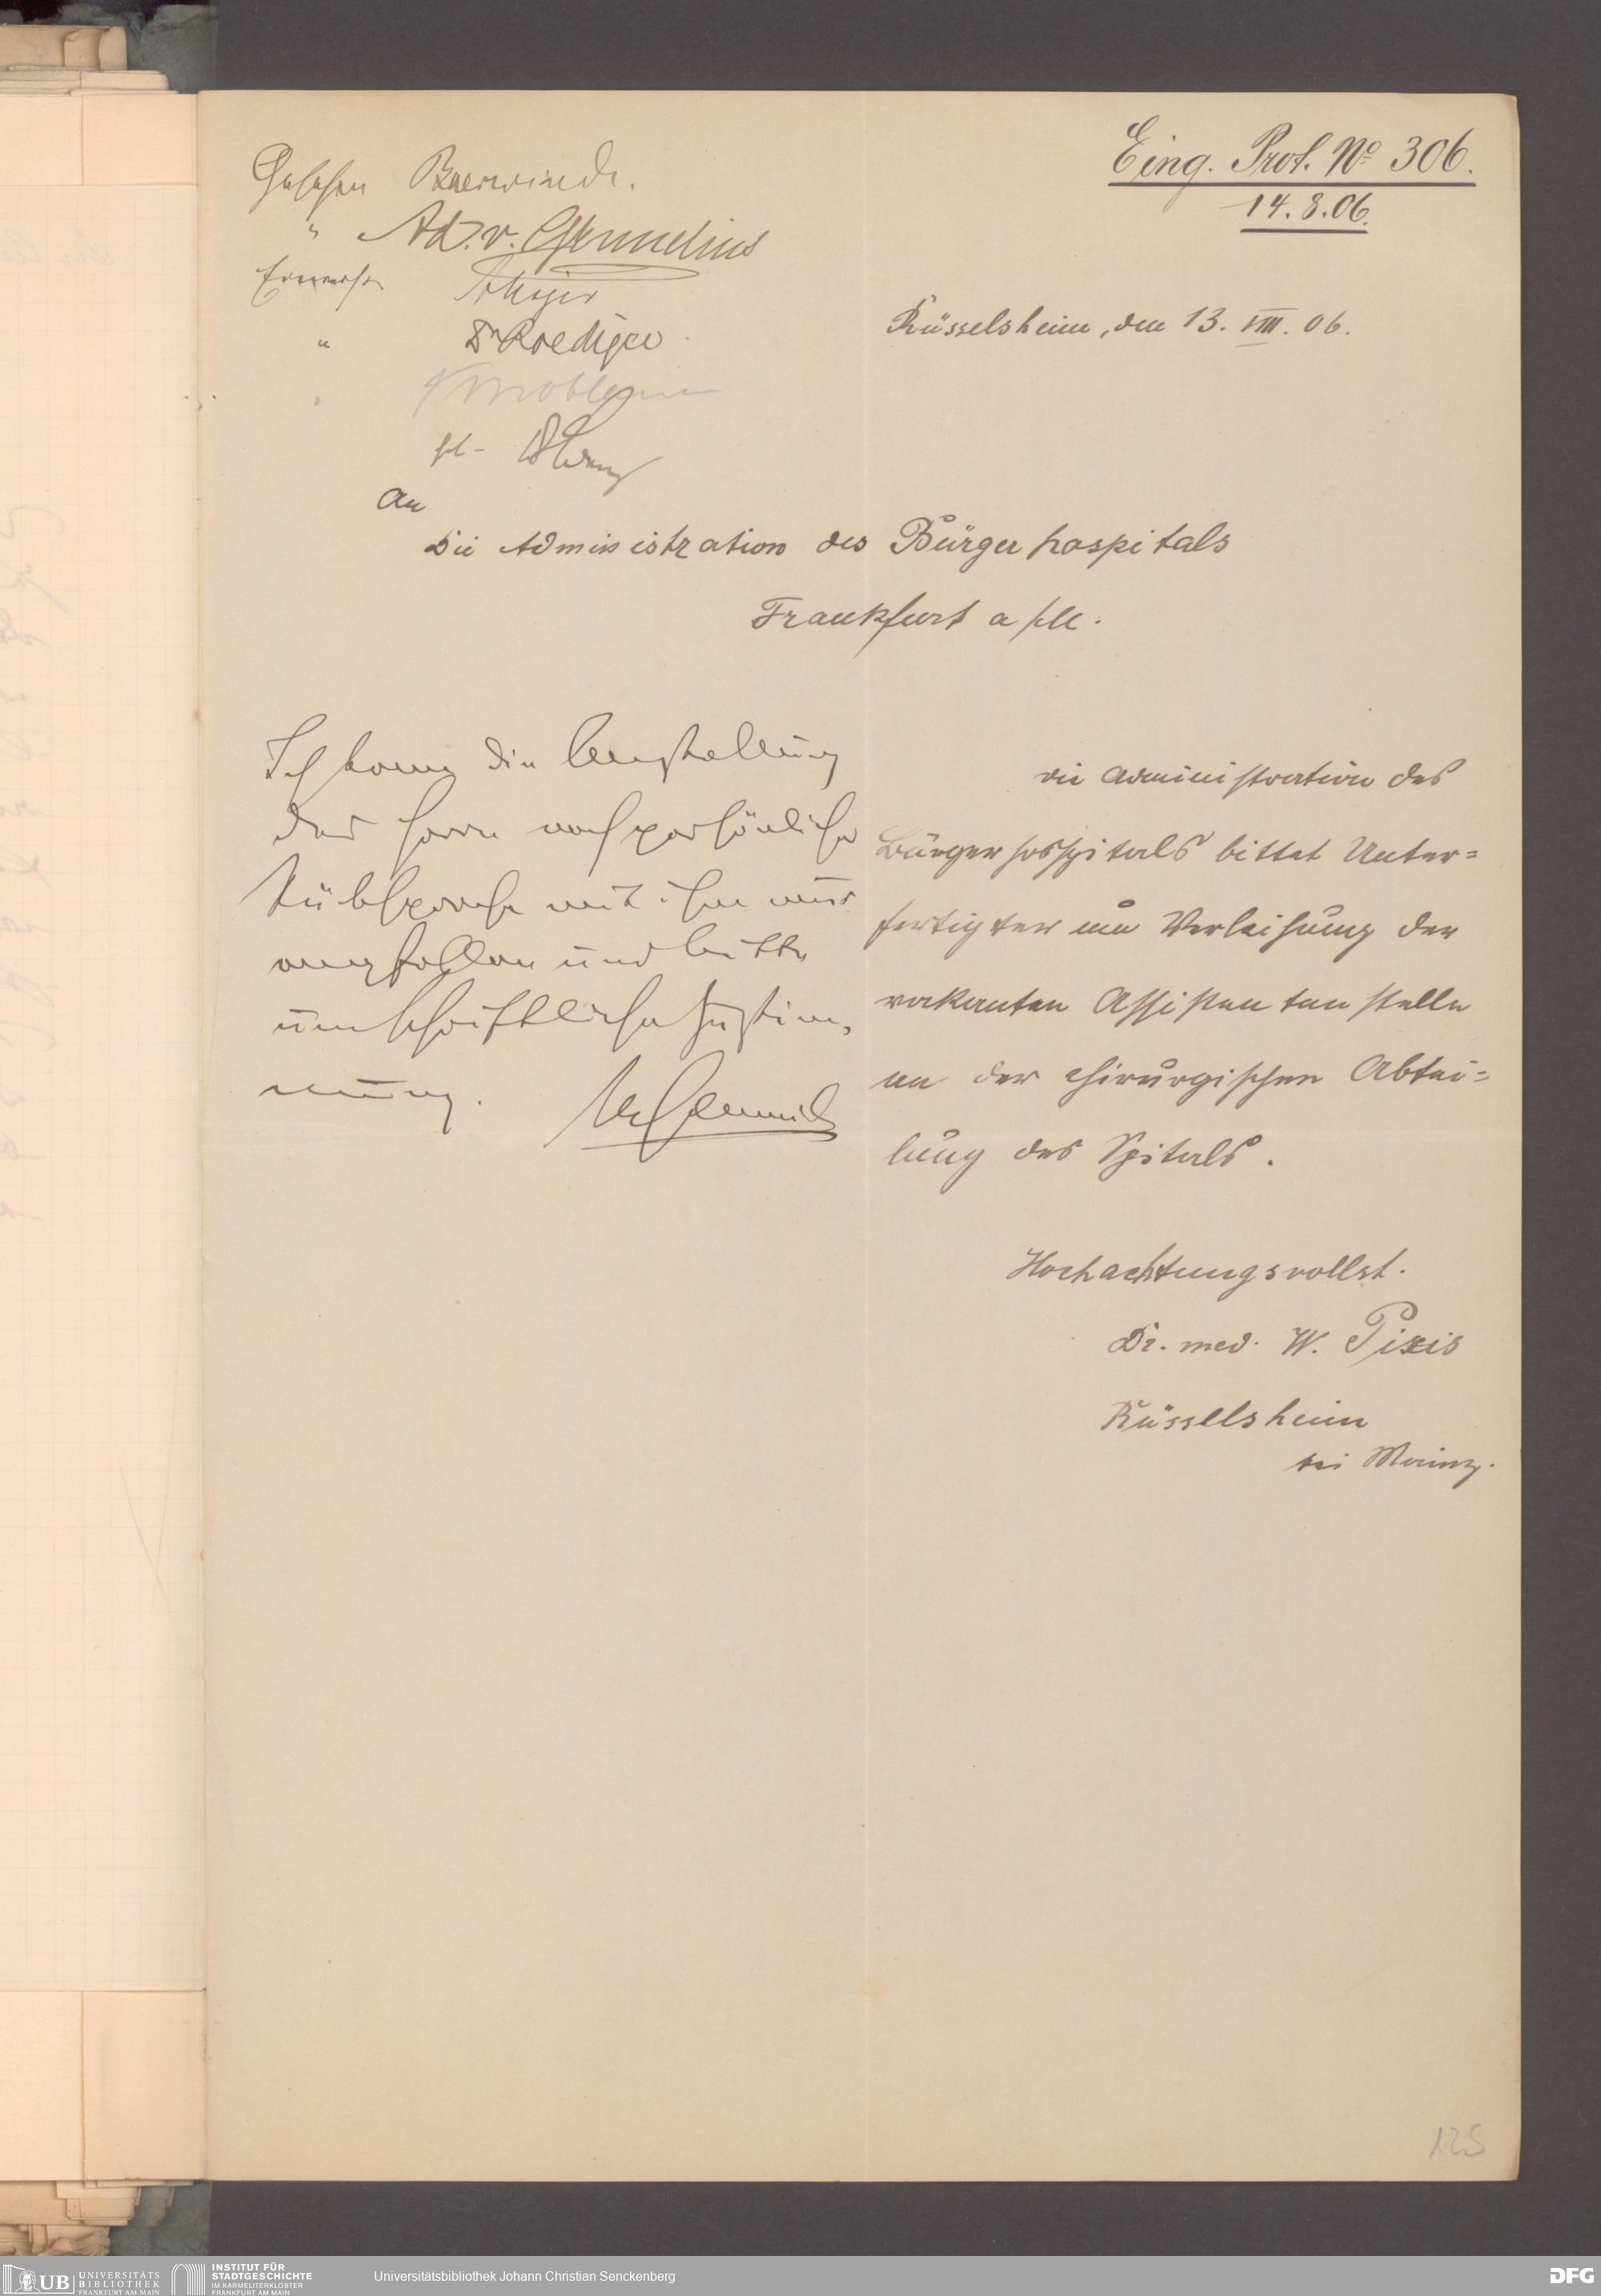 Eing. Prot. No 306.
14.8.06.
Gesehen Baerwindt.
" Ad. v.
Einverstn
" Dr Roediger
"
Rüsselsheim, den 13. VIII. 06.
An
Die Administration des Bürgerhospitals
Frankfurt a/M.
Die Administration des
Bürgerhospitals bittet Unter=
fertigter um Verleihung der
vakanten Assistentenstelle
an der chirurgischen Abtei=
lung des Spitals.
Hochachtungsvollst.
Dr. med. W. Pixis
Rüsselsheim
bei Mainz.
Ich kann die Anstellung
des Herrn nach persönlicher
Rücksprache mit ihm nur
empfehlen und bitte
um schriftliche Zustim-
mung.
125
UB UNIVERSITÄTS
BIBLIOTHEK
FRANKFURT AM MAIN
INSTITUT FÜR
STADTGESCHICHTE
IM KARMELITERKLOSTER
FRANKFURT AM MAIN
Universitätsbibliothek Johann Christian Senckenberg
DFG